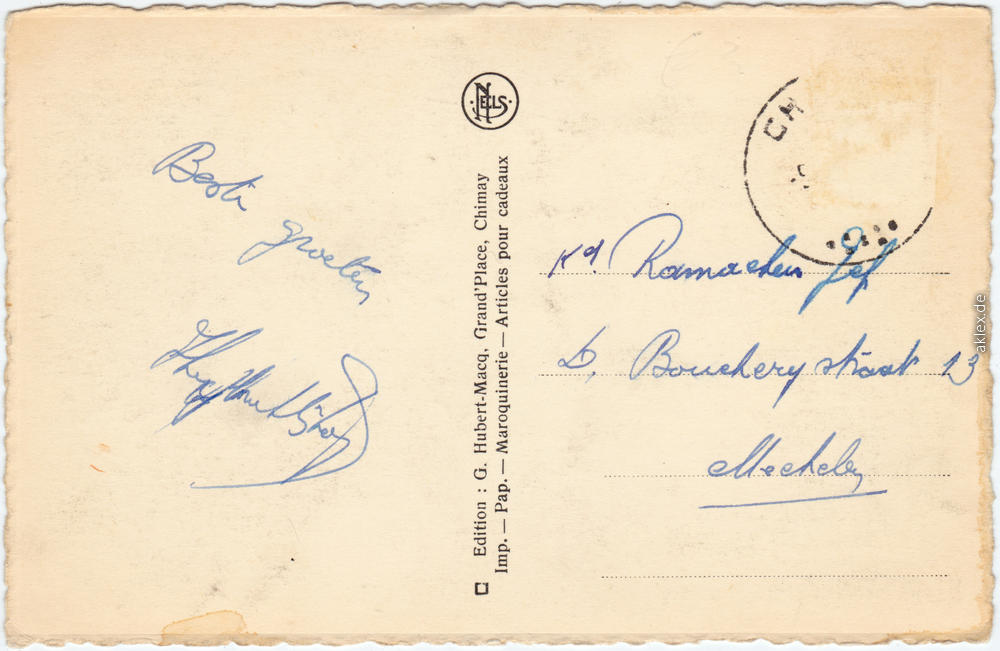 Beste
groeten
NELS
Edition : G. Hubert-Macq, Grand'Place, Chimay
Imp. — Pap. — Maroquinerie — Articles pour cadeaux
CH
Kd. Ramaekers Jef
D. Boucherystraat 13
Mechelen
aklex.de